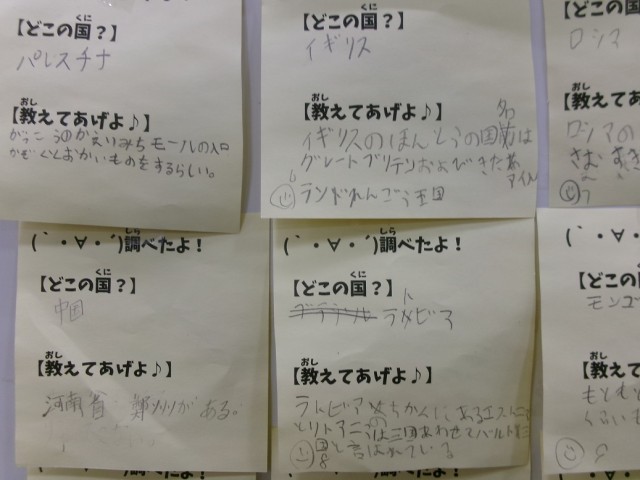 【どこの国？】
くに
パレスチナ
【教えてあげよ♪】
おし
がっこうのかえりみちモールの入口
かぞくとおかいものをするらしい。
【どこの国？】
くに
イギリス
【教えてあげよ♪】
おし
名
イギリスのほんとうの国
は
グレートブリテンおよびきたあ
アイル
ランドれんごう王国
【どこの
ロシア
【教えて
おし
ロシアの
(｀・∀・´)調べたよ！
しら
【どこの国？】
くに
中国
【教えてあげよ♪】
おし
河南省 鄭州がある。
(｀・∀・´)調べたよ！
しら
【どこの国？】
くに
ト
ラ ビア
【教えてあげよ♪】
おし
ラトビア ちかくにあるエストニア
とリトアニアの
は三国あわせてバルト三
国と言われている
(｀・
【どこの国
モンゴ
【教えて
おし
もともと
くらいで
調べたよ！
しら
調べたよ！
しら